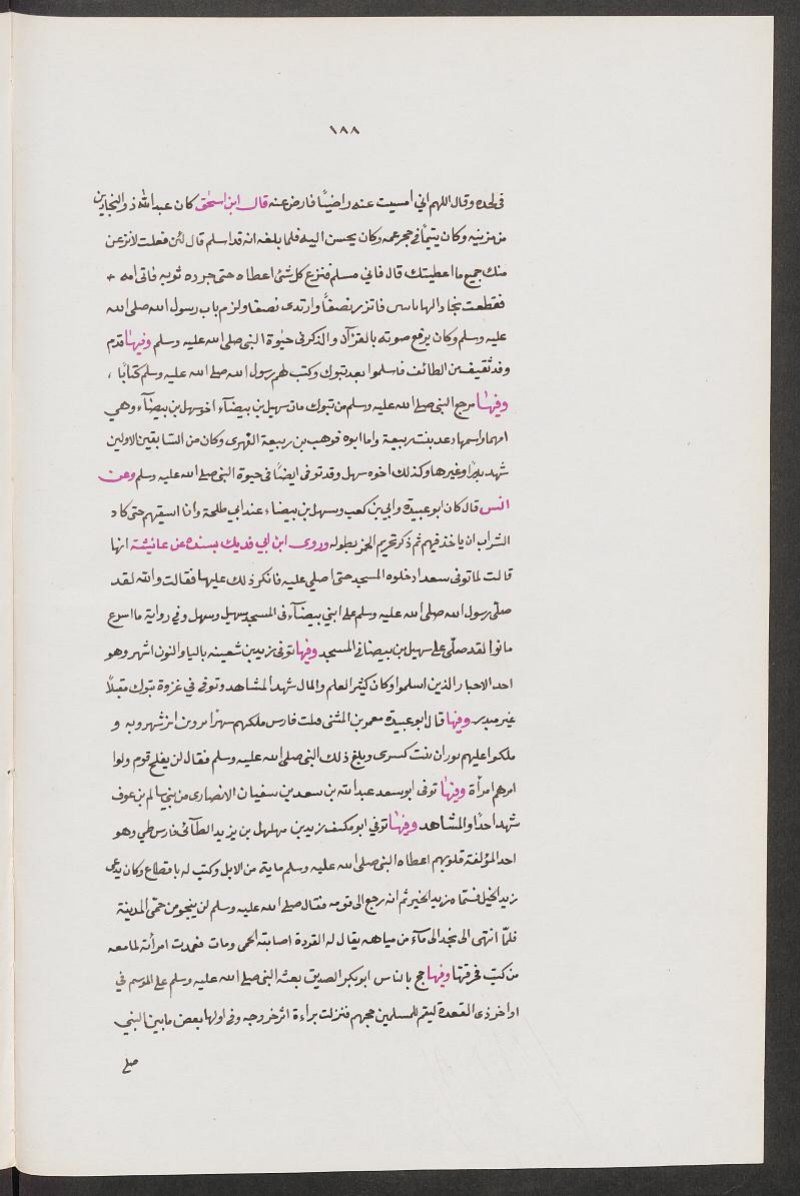 ١٨٨
في لحده وقال اللهم اني امسيت عنه راضيًا فارض عنه قال ابن اسحٰق كان عبد الله ذو البجادين
من مزينه وكان يتيمًا في حجر عمه وكان يحسن اليه فلما بلغه انه قد اسلم قال لئن فعلت لانزعن
منك جميع ما اعطيتك قال فاني مسلم فنزع كل شئ اعطاه حتى جرده ثوبه فاتى امه
فقطعت بجاد الها باسى فاتزر نصفًا وارتدى نصفا ولزم باب رسول الله صلى الله
عليه وسلم وكان يرفع صوته بالقرآن والذكر في حيٰوة النبى صلى الله عليه وسلم وفيهٰا قدم
وفد ثقيف من الطائف فاسلموا بعد تبوك وكتب لهم رسول الله صلى الله عليه وسلم كتابًا ،
وفيهٰا مرجع النبى صلى الله عليه وسلم من تبوك مات سهيل بن بيضآء اخو سهل بن بيضآء وهي
امهما واسمها دعد بنت ربيعة واما ابوه فوهب بن ربيعة الفهرى وكان من السّابقين الاولين
شهد بدرًا وغيرها وكذلك اخوه سهل وقد توفى ايضًا في حيوة النبى صلى الله عليه وسلم وعن
انس قال كان ابو عبيدة وابي بن كعب وسهل بن بيضاء عند ابي طلحة وانا اسقيهم حتى كاد
الشراب ان ياخذ فيهم ثم ذكر تحريم الخمر بطوله وروى ابن ابي فديك بسنده عن عائيشة انها
قالت لما توفى سعد ادخلوه المسجد حتى اصلي عليه فانكر ذلك عليها فقالت والله لقد
صلّى رسول الله صلى الله عليه وسلم على ابني بيضآء فى المسجد سهيل وسهل وفي رواية ما اسرع
ما نوا لقد صلّى على سهيل بن بيضا في المسجد وفيها توفى زيد بن شعينه باليا والنون اشهر وهو
احد الاحبار الذين اسلموا وكان كثير العلم والمال شهد المشاهد وتوفي في غزوة تبوك مقبلاً
غير مدبر وفيها قال ابو عبيدة معمر بن المثنى قتلت فارس ملكهم شهرابرو بن ابزشهرويه و
ملكوا عليهم بوران بنت كسرى وبلغ ذلك النبى صلى الله عليه وسلم فقال لن يفلح قوم ولوا
امرهم امرأة وفيهٰا توفى ابو سعد عبد الله بن سعد بن سفيان الانصارى من بنى سالم بن عوف
شهد احدًا والمشاهد وفيهٰا توفي ابو مكنف زيد بن مهلهل بن يزيد الطآئى فارس طي وهو
احد المؤلفة قلوبهم اعطاه النبى صلى الله عليه وسلم ماية من الابل وكتب له باقطاع وكان يدعى
زيد الخيل فسماه زيد الخير ثم انه رجع الى قومه فقال صلى الله عليه وسلم لن ينجو من حمّى المدينة
فلمّا انتهى الى نجد الى مآء من مياهه يقال له القردة اصابته الحمى ومات فعمدت امرأته لما معه
من كتب فحرقتها وفيها حج بالناس ابو بكر الصديق بعثه النبى صلى الله عليه وسلم على الموسم في
اواخر ذى القعدة ليقم للمسلمين حجهم فنزلت براءة اثر خروجه وفي اولها بعض ما بين النبي
صلى